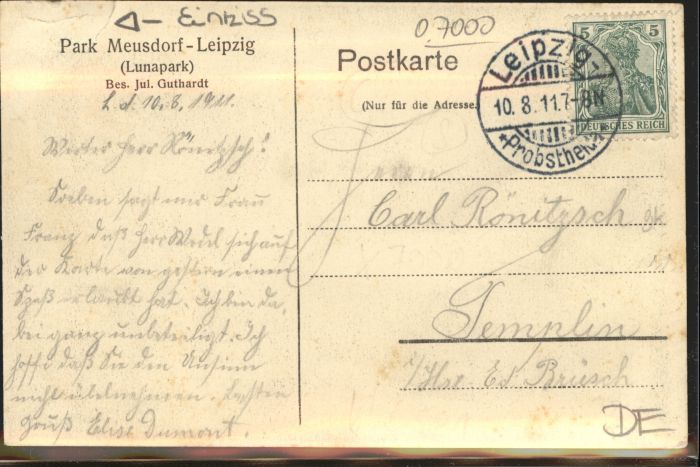 Einriss
0.7000
Park Meusdorf-Leipzig
(Lunapark)
Bes. Jul. Guthardt
L. d. 10. 8. 1911.
Postkarte
(Nur für die Adresse.
Leipzig-
10. 8. 11. 7-8N
*Probstheida
5 5
DEUTSCHES REICH
Werter Herr Rönitzsch!
Soeben sagt mir Frau
Franz daß Herr Wedel sich auf
der Karte von gestern einen
Spaß erlaubt hat. Ich bin da,
bei ganz unbeteiligt. Ich
hoffe daß Sie den Unsinn
nicht übelnehmen. Besten
Gruß Elise Dumont.
Herrn
Carl Rönitzsch
Templin
i/Hse. Ed. Brüsch
DE